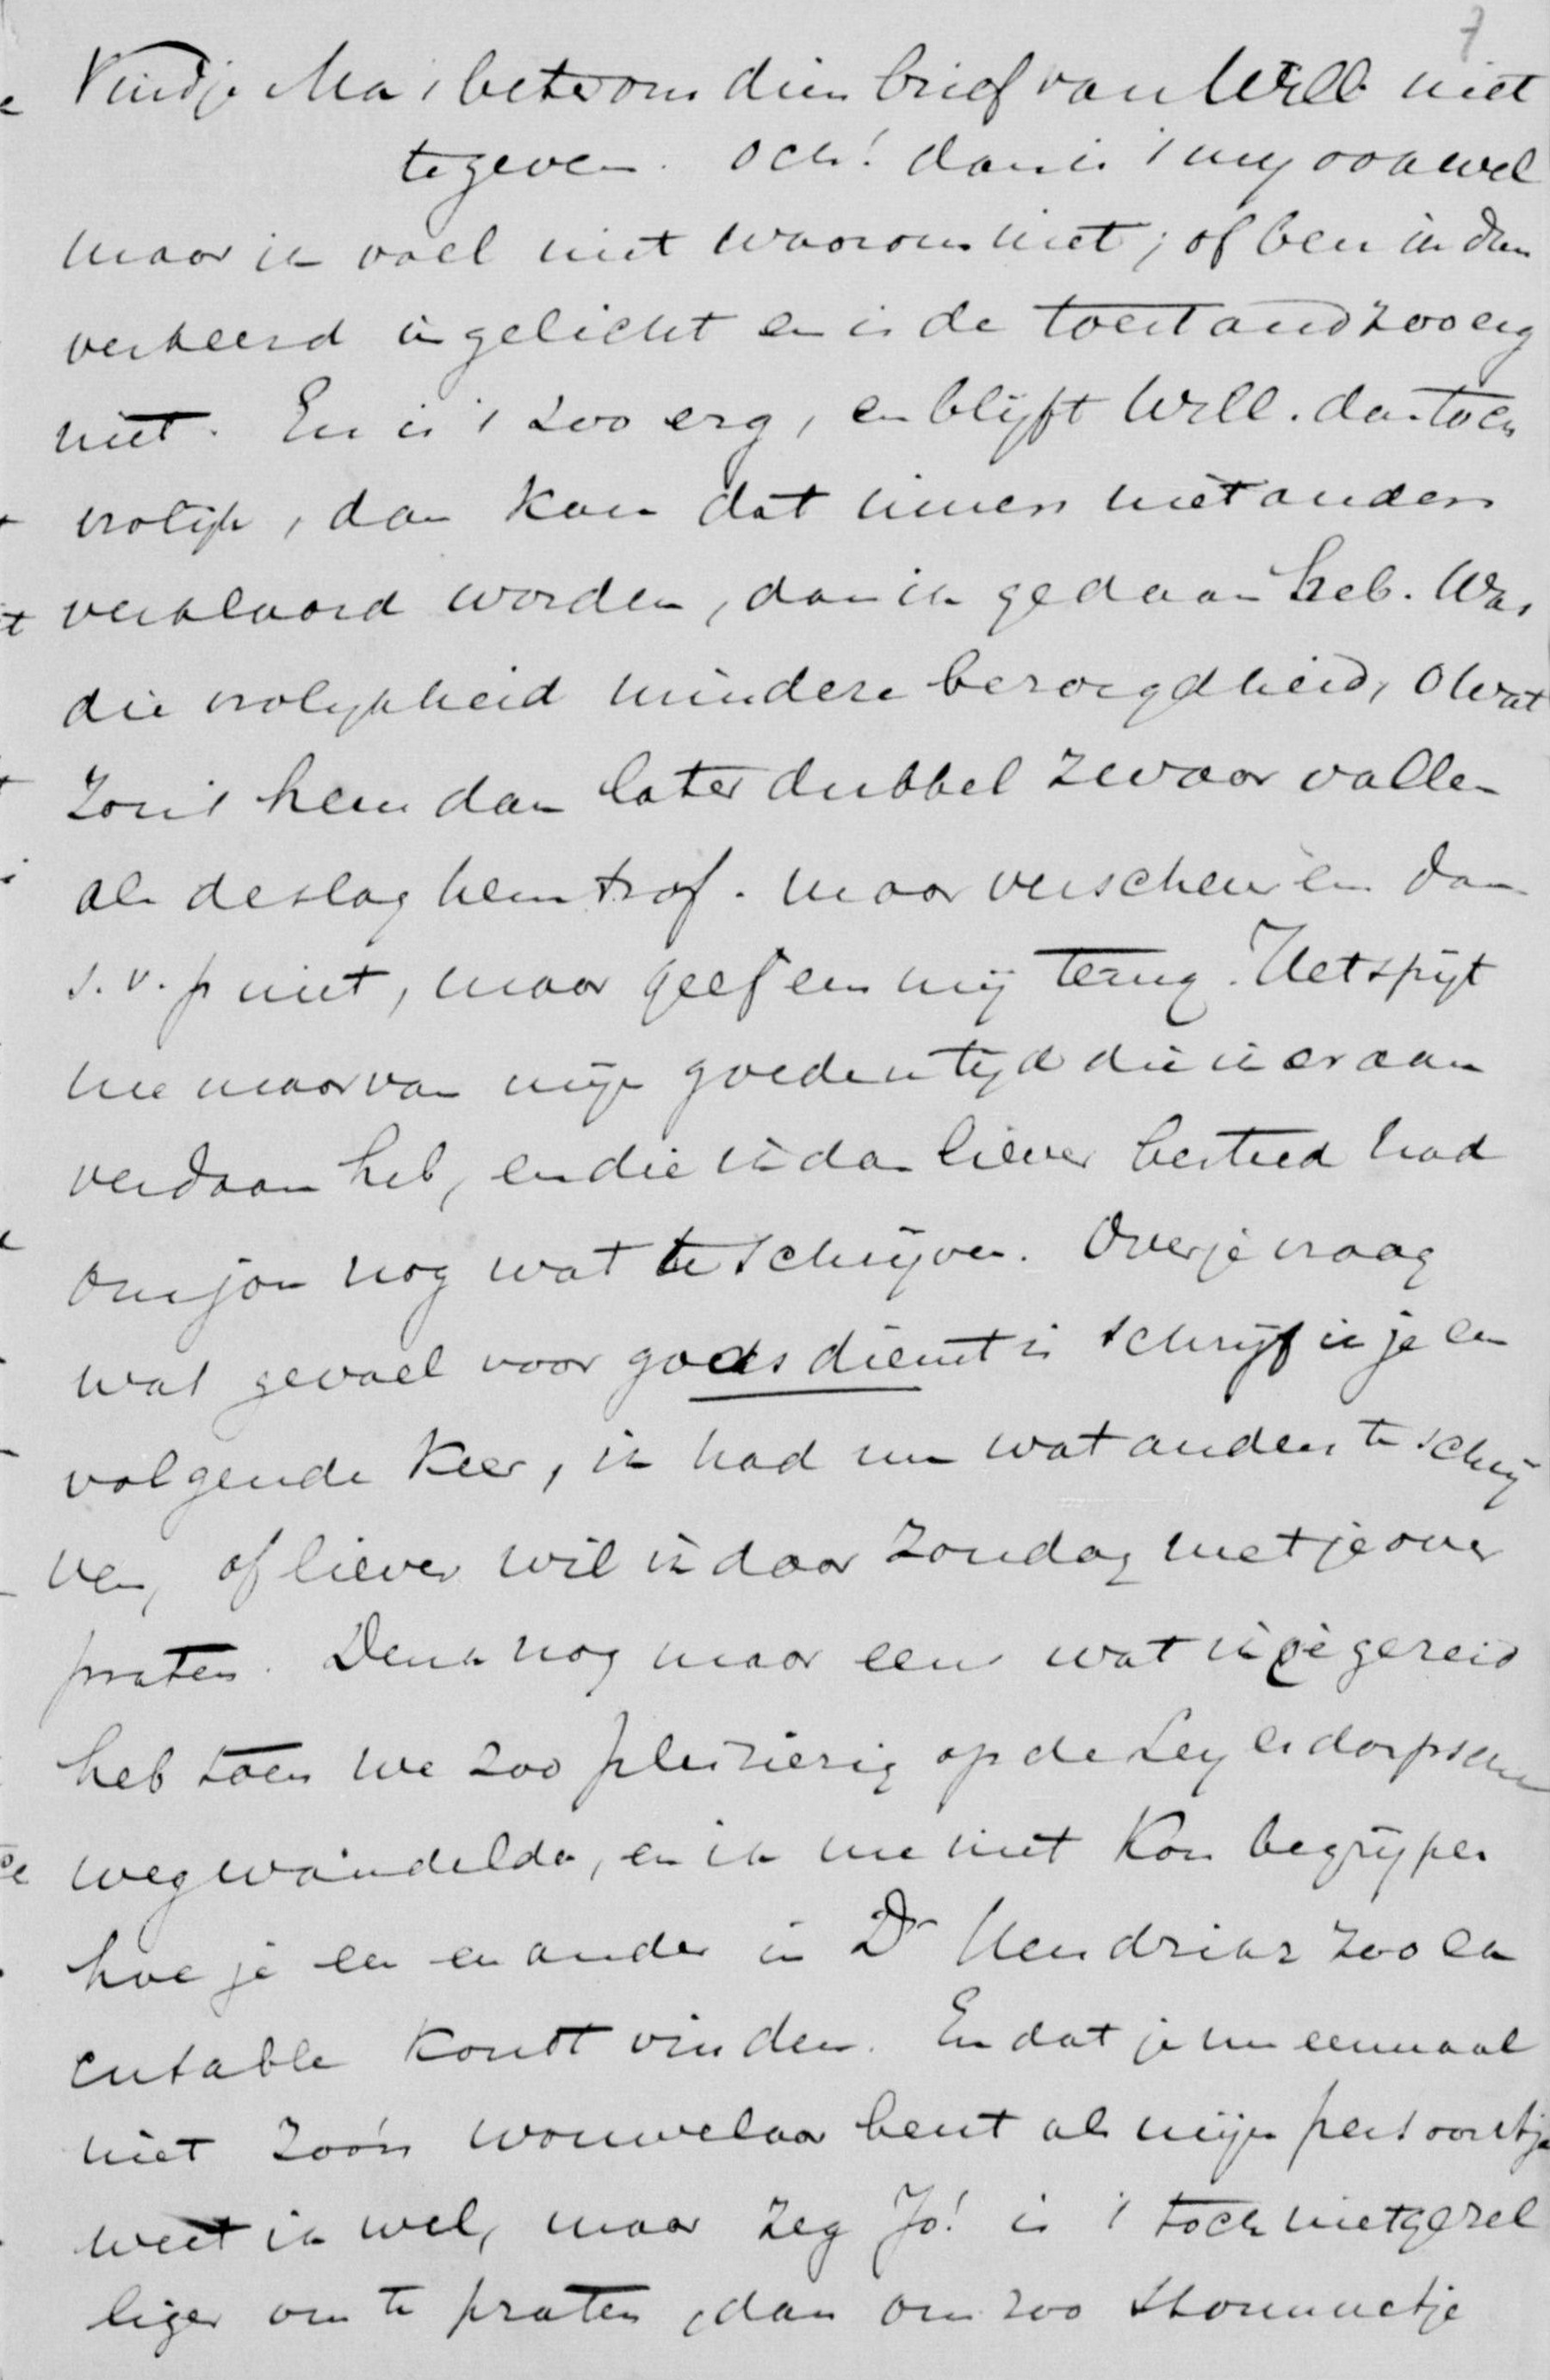 7
Vindje Ma 't beter om dien brief van Will niet
te geven. och! dan is 't my ook wel
maar ik voel niet waarom niet; of ben ik dan
verkeerd ingelicht en is de toestand zoo erg
niet. En is 't zoo erg, en blijft Will. dan toch
vrolijk, dan kan dat immers niet anders
verklaard worden, dan ik gedaan heb. Was
die vrolykheid mindere bezorgdheid, o wat
zou 't hem dan later dubbel zwaar vallen
als de slag hem trof. maar verscheur 'em dan
s.v.p niet, maar geef em mij terug. Het spijt
me maar van mijn goeden tijd die ik er aan
verdaan heb, en die ik dan liever besteed had
om jou nog wat te schrijven. Over je vraag
wat gevoel voor godsdienst is schrijf ik je en
volgende keer, ik had nu wat anders te schrij
ven, of liever wil ik daar Zondag met je over
praten. Denk nog maar eens wat ik je gezeid
heb toen we zoo pleizierig op de Leyerdorpschen
weg wandelde, en ik me niet kon begrijpen
hoe je een en ander in Dr Hendriks zoo en
entable kondt vinden. En dat je nu eenmaal
niet zoo'n wouwelaar bent als mijn persoontje
weet ik wel, maar zeg Jo! is 't toch niet gezel
liger om te praten, dan om zoo stommetje